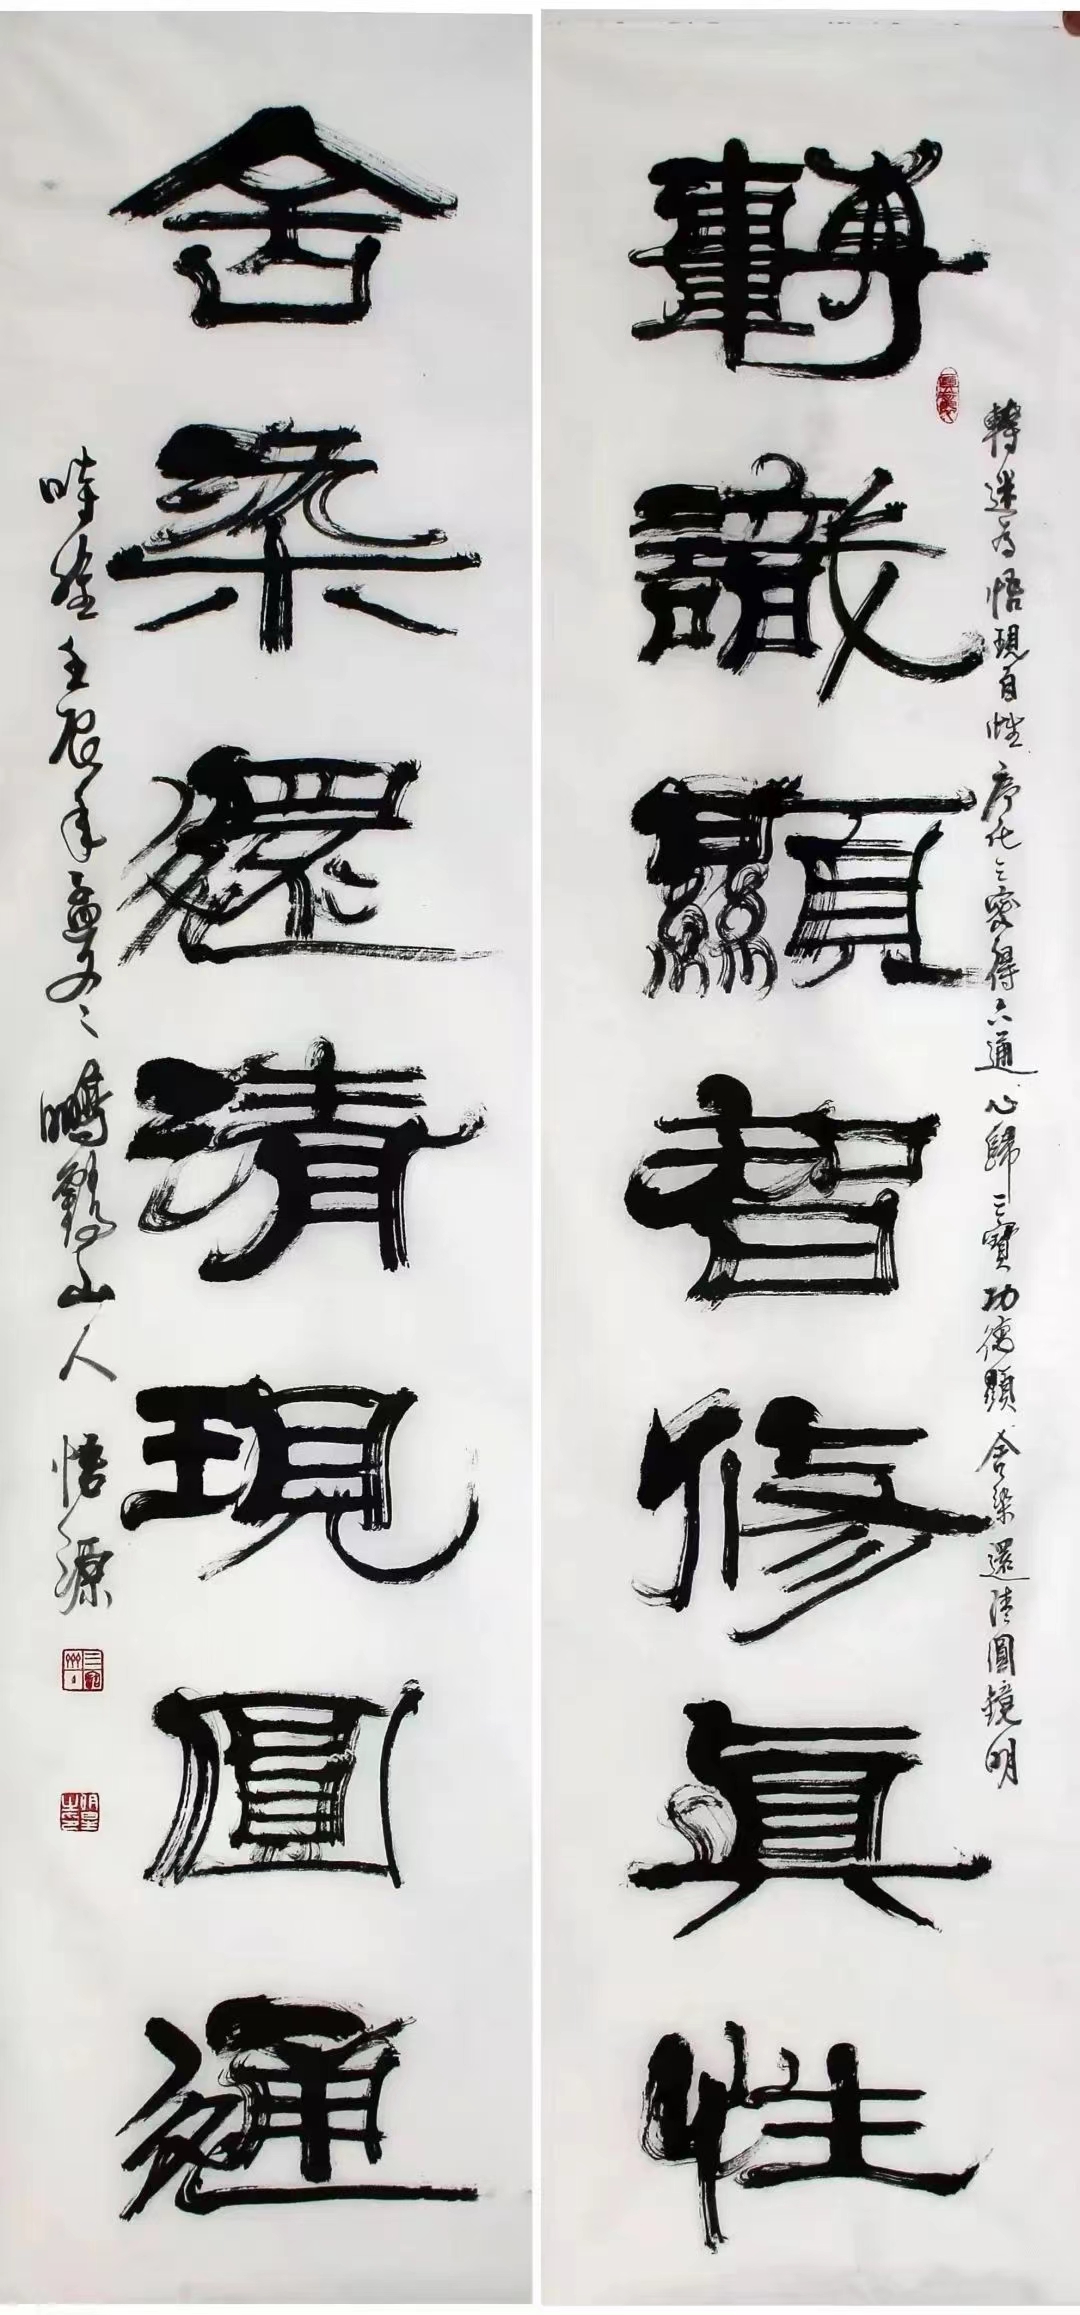 轉識顯智修真性
轉迷為悟現自性 序化三密得六通 心歸三寶功德顯 舍染還清圓鏡明
舍染還清現圓通
時維壬辰年孟冬 鶴山人 悟源